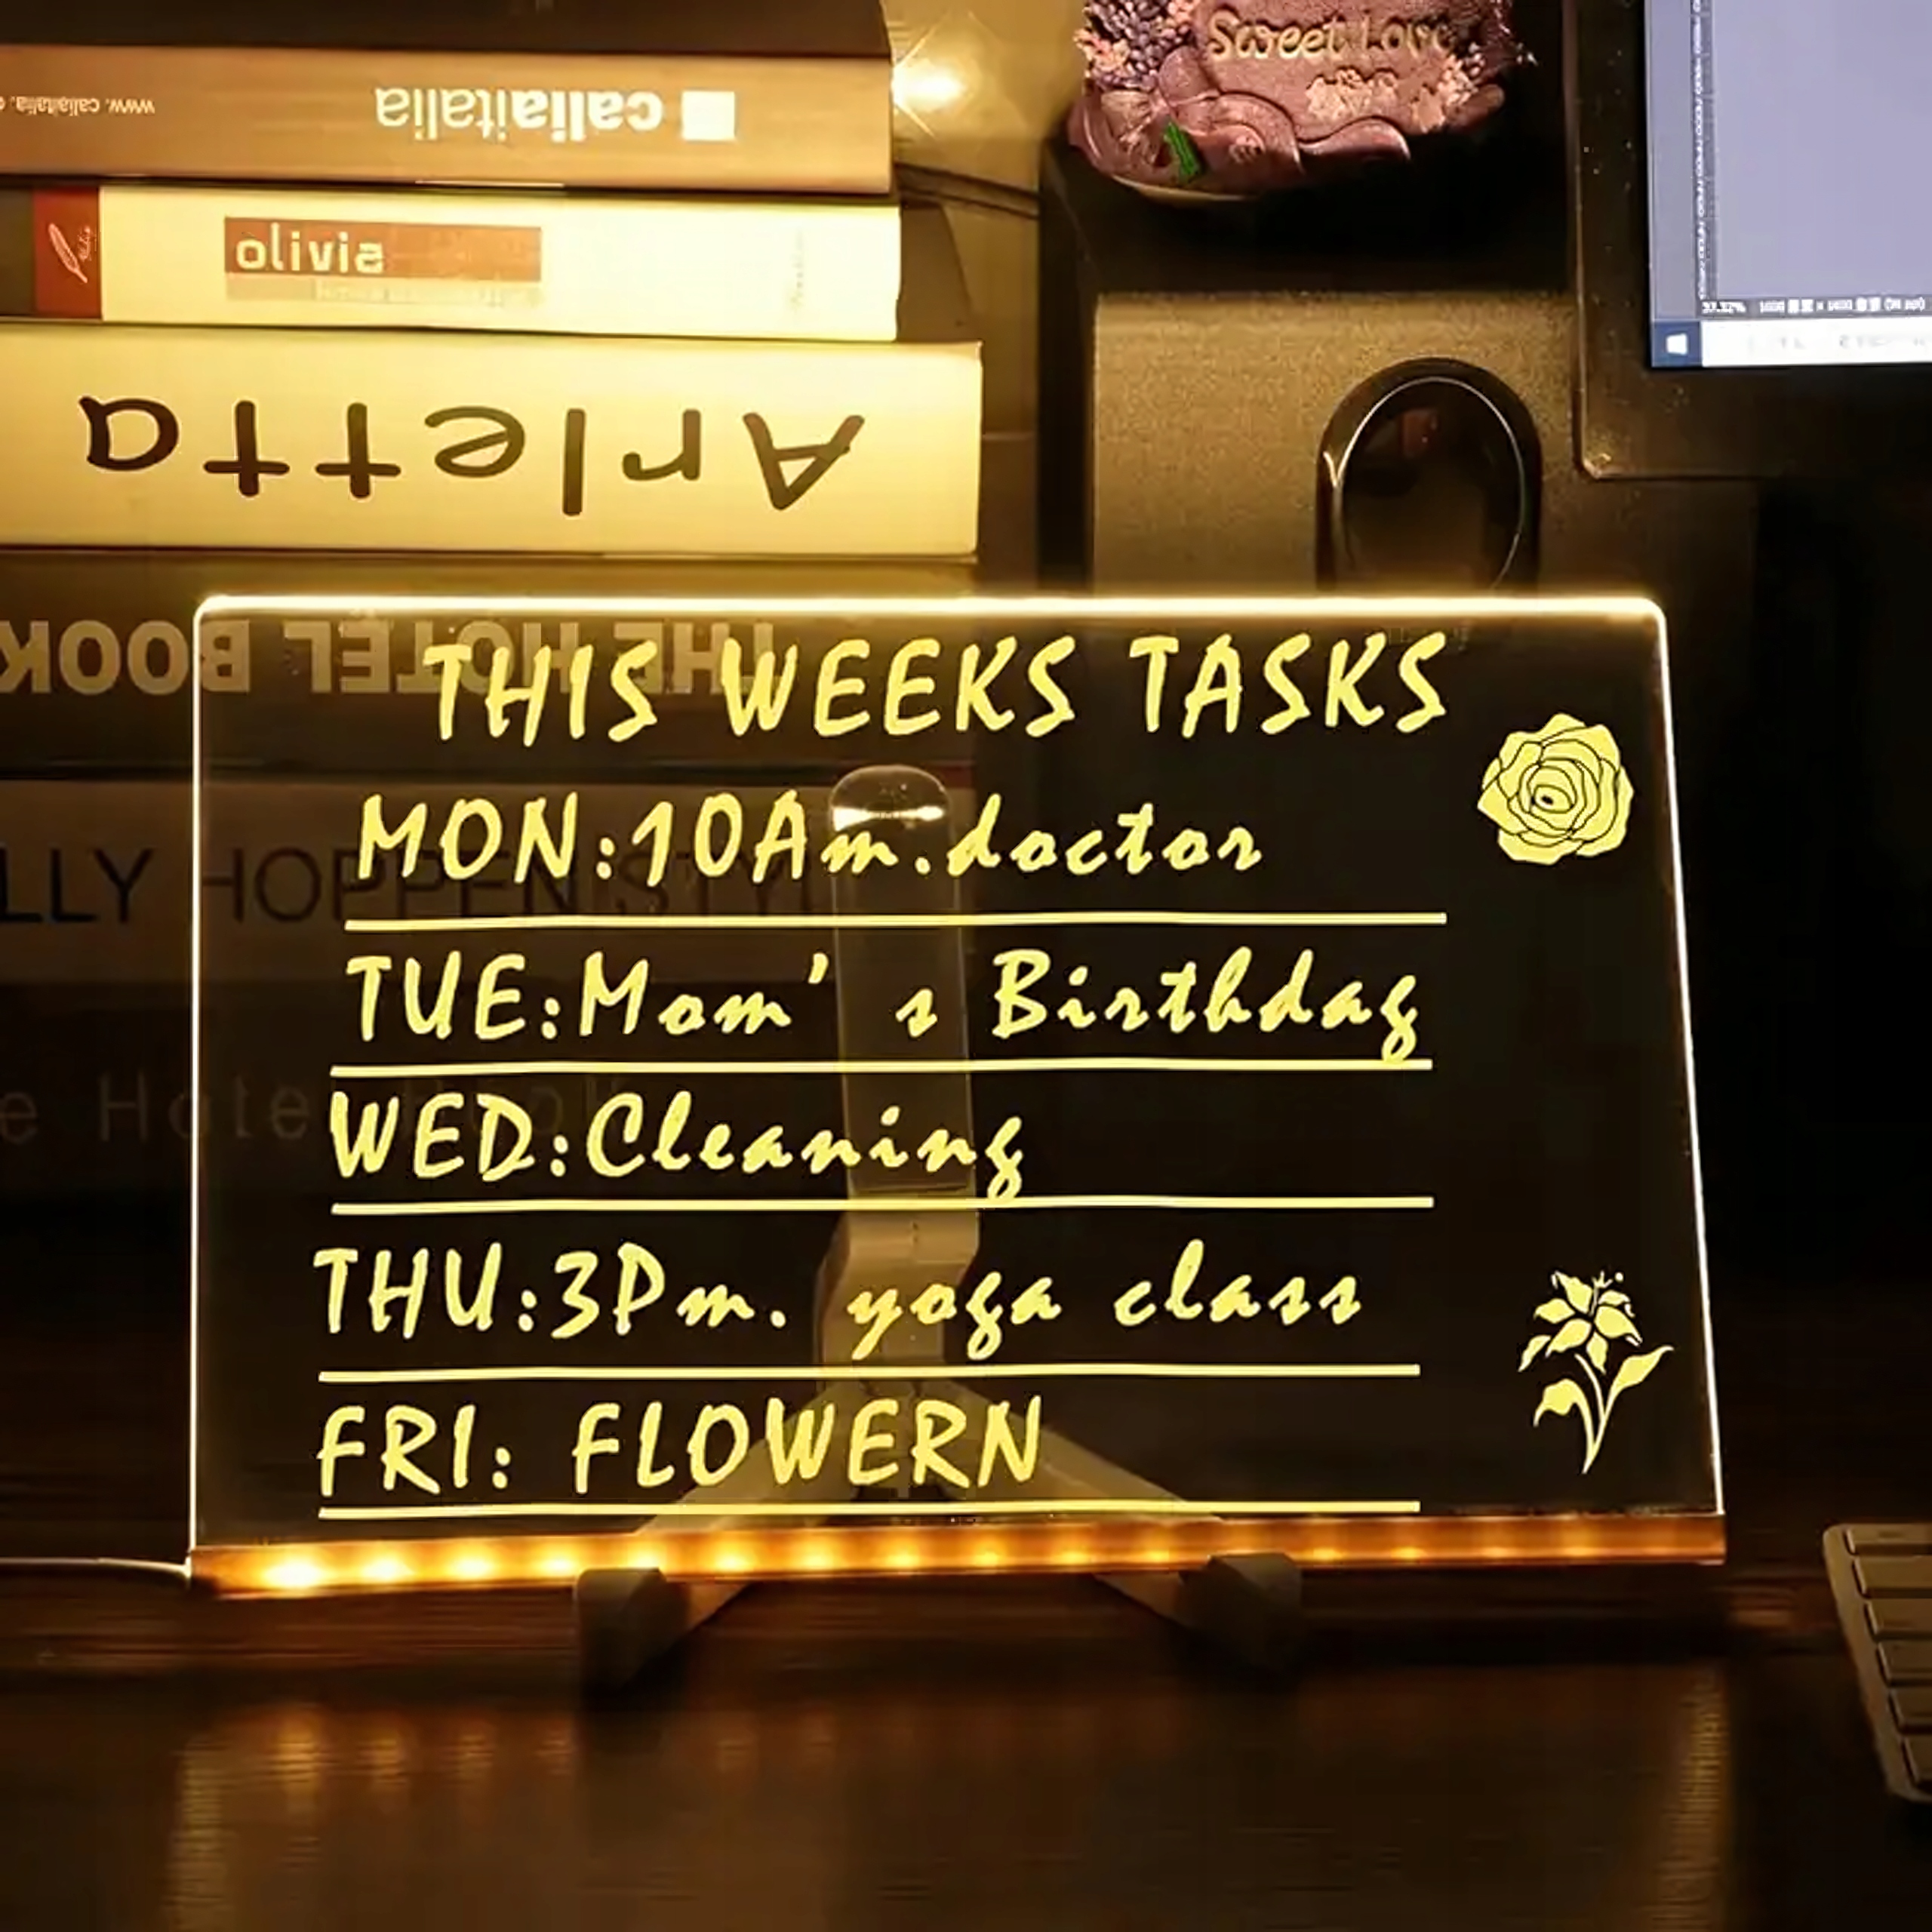 Sweet Love
caliaitalia
www.caliaitalia.
olivia
Arletta
THE HOTEL BOOK
THIS WEEKS TASKS
MON:10Am.doctor
LLY HOPPEN STYL
TUE:Mom's Birthday
WED:Cleaning
e Hotel Book
THU:3Pm. yoga class
FRI: FLOWERN